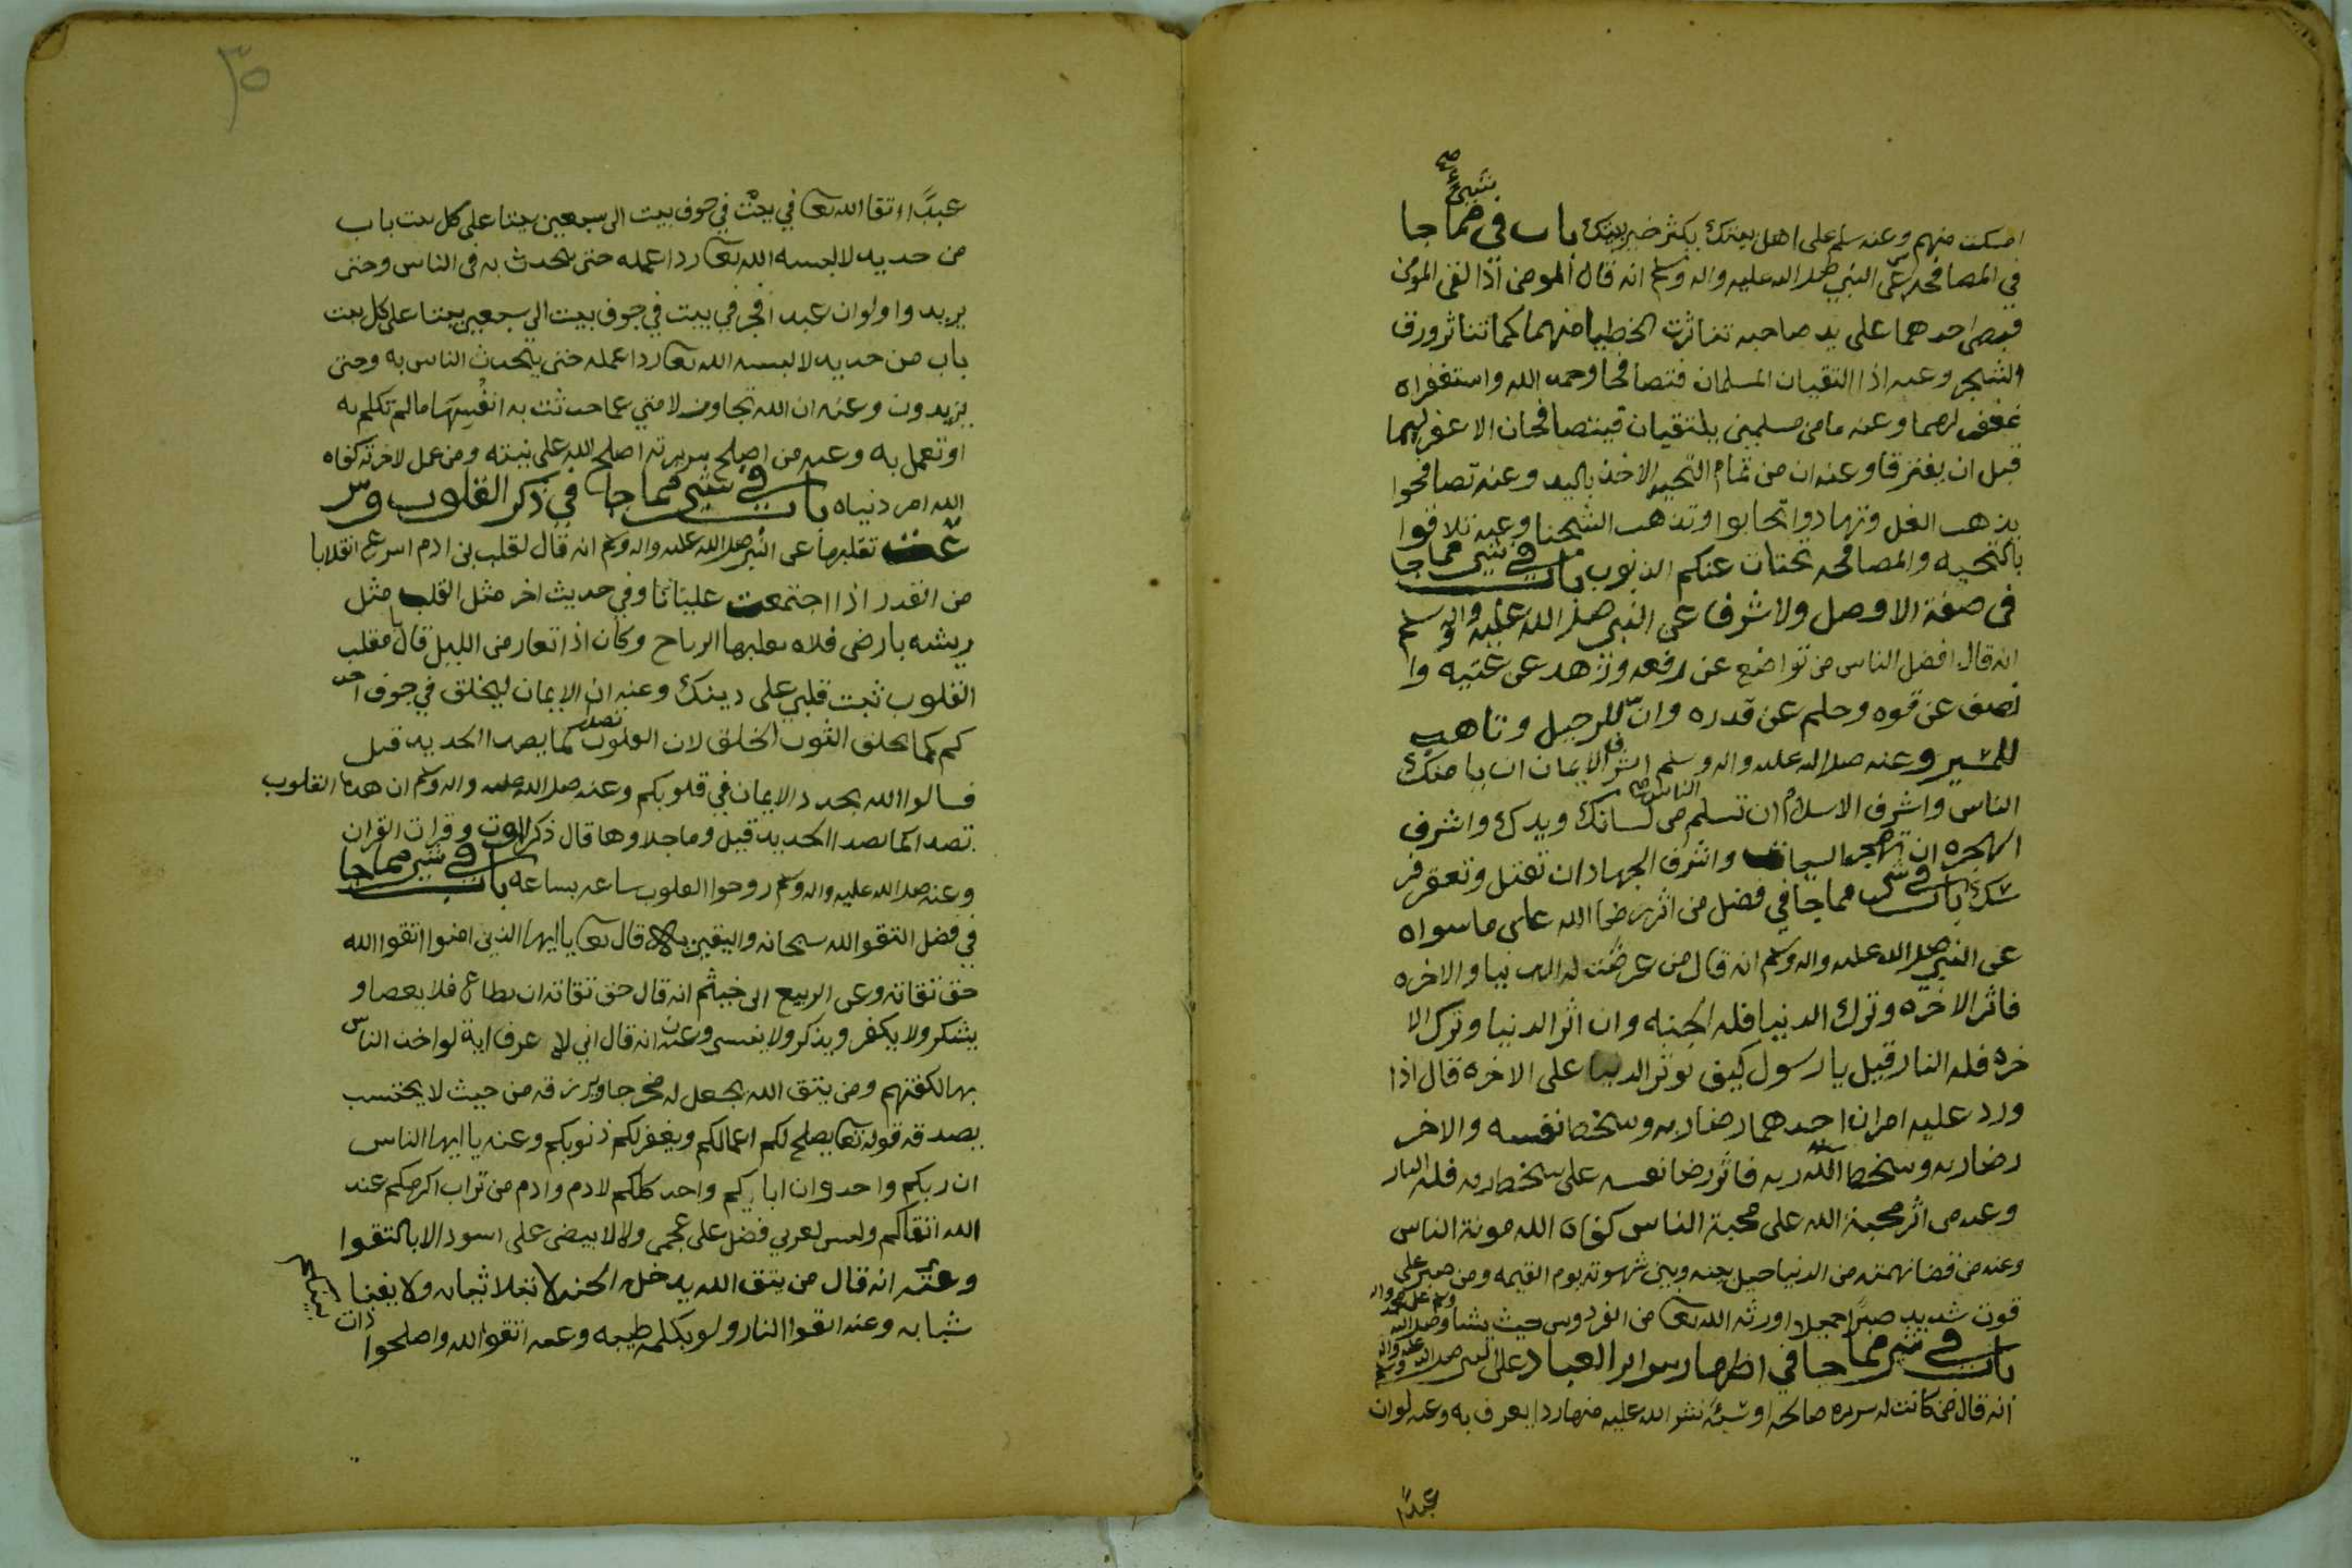 امسكت منهم وعنه سلم على اهل بيتك يكثر خير بيتك باب في شيئ صح مما جا
في المصافحه عن النبي صلى الله عليه واله وسلم انه قال المومن اذا لقى المومن
فقبض احدهما على يد صاحبه تناثرت الخطيا منهما كما تناثر ورق
الشجر وعنه اذا التقيان المسلمان فتصافحا وحمد الله واستغفراه
غفر لهما وعنه ما من مسلمين يلتقيان فيتصافحان الا غفر لهما
قبل ان يفترقا وعنه ان من تمام التحيه الاخذ باليد وعنه تصافحوا
يذهب الغل وتهادوا تحابوا وتذهب الشحنا وعنه تلاقوا
بالتحيه والمصافحه يحتات عنكم الذنوب باب في شي مما جا
في صفة الاوصل ولاشرف عن النبي صلى الله عليه واله وسلم
انه قال افضل الناس من تواضع عن رفعه وزهد عن غنيه وا
نصف عن قوه وحلم عن قدره وان للرحيل وتاهب
للمسير وعنه صلى الله عليه واله وسلم اشرف الايمان ان يامنك
الناس واشرف الاسلام ان تسلم الناس صح من لسانك ويدك واشرف
الهجره ان تهجر السيات واشرف الجهاد ان تقتل وتعقر فر
سك باب في شي مما جا في فضل من اثر رضا الله على ما سواه
عن النبي صلى الله عليه واله وسلم انه قال من عرضت له الدنيا والاخره
فاثر الاخره وترك الدنيا فله الجنه وان اثر الدنيا وترك الا
خره فله النار قيل يا رسول كيف نوثر الدنيا على الاخره قال اذا
ورد عليه امران احدهما رضا ربه وسخط نفسه والاخر
رضا ربه وسخط الله ربه فاثر رضا نفسه على سخط ربه فله النار
وعنه من اثر محبة الله على محبة الناس كفاه الله مونة الناس
وعنه من قضا نهمته من الدنيا حيل بينه وبين شهوته يوم القيمه ومن صبر على
قوت شديد صبرًا جميلا اورثه الله تعا من الفردوس حيث يشا وصلى الله على محمد واله وسلم
باب في شي مما جا في اظهار سراير العباد عن النبي صلى الله عليه واله وسلم
انه قال من كانت له سريره صالحه او سيئه نشر الله عليه منها ردا يعرف به وعنه لو ان
عبدًا
٣٥
عبدًا اتقا الله تعا في بيت في جوف بيت الى سبعين بيتا على كل بيت باب
من حديد لالبسه الله تعا ردا عمله حتى يتحدث به في الناس وحتى
يريدوا ولو ان عبد افجر في بيت في جوف بيت الى سبعين بيتا على كل بيت
باب من حديد لالبسه الله تعا ردا عمله حتى يتحدث الناس به وحتى
يزيدون وعنه ان الله تجاوز لامتي عما حدثت به انفسها ما لم تكلم به
او تعمل به وعنه من اصلح سريرته اصلح الله علانيته ومن عمل لاخرته كفاه
الله امر دنياه باب في شي مما جا في ذكر القلوب وسر
عت تقلبها عن النبي صلى الله عليه واله وسلم انه قال لقلب بن ادم اسرع انقلابا
من القدر اذا اجتمعت غليانا وفي حديث اخر مثل القلب مثل
ريشه بارض فلاه تقلبها الرياح وكان اذا تعار من الليل قال يا مقلب
القلوب ثبت قلبي على دينك وعنه ان الايمان ليخلق في جوف احد
كم كما يخلق الثوب الخلق لان القلوب تصدا كما يصدا الحديد قيل
فسالوا الله يجدد الايمان في قلوبكم وعنه صلى الله عليه واله وسلم ان هذه القلوب
تصدا كما يصدا الحديد قيل وما جلاوها قال ذكر الموت وقرات القران
وعنه صلى الله عليه واله وسلم روحوا القلوب ساعه بساعه باب في شي مما جا
في فضل التقوا لله سبحانه واليقين قال تعا يا ايها الذين امنوا اتقوا الله
حق تقاته وعن الربيع بن خيثم انه قال حق تقاته ان يطاع فلا يعصا و
يشكر ولا يكفر ويذكر ولا ينسى وعنه انه قال اني لا عرف اية لو اخذ الناس
بها لكفتهم ومن يتق الله يجعل له مخرجا ويرزقه من حيث لا يحتسب
يصدقه قوله تعا يصلح لكم اعمالكم ويغفر لكم ذنوبكم وعنه يا ايها الناس
ان ربكم واحد وان اباكم واحد كلكم لادم وادم من تراب اكرمكم عند
الله اتقاكم وليس لعربي فضل على عجمي ولا لابيض على اسود الا بالتقوا
وعنه انه قال من يتق الله يدخل الجنه لا تبلا ثيابه ولا يفنا
شبابه وعنه اتقوا النار ولو بكلمه طيبه وعنه اتقوا الله واصلحوا ذات